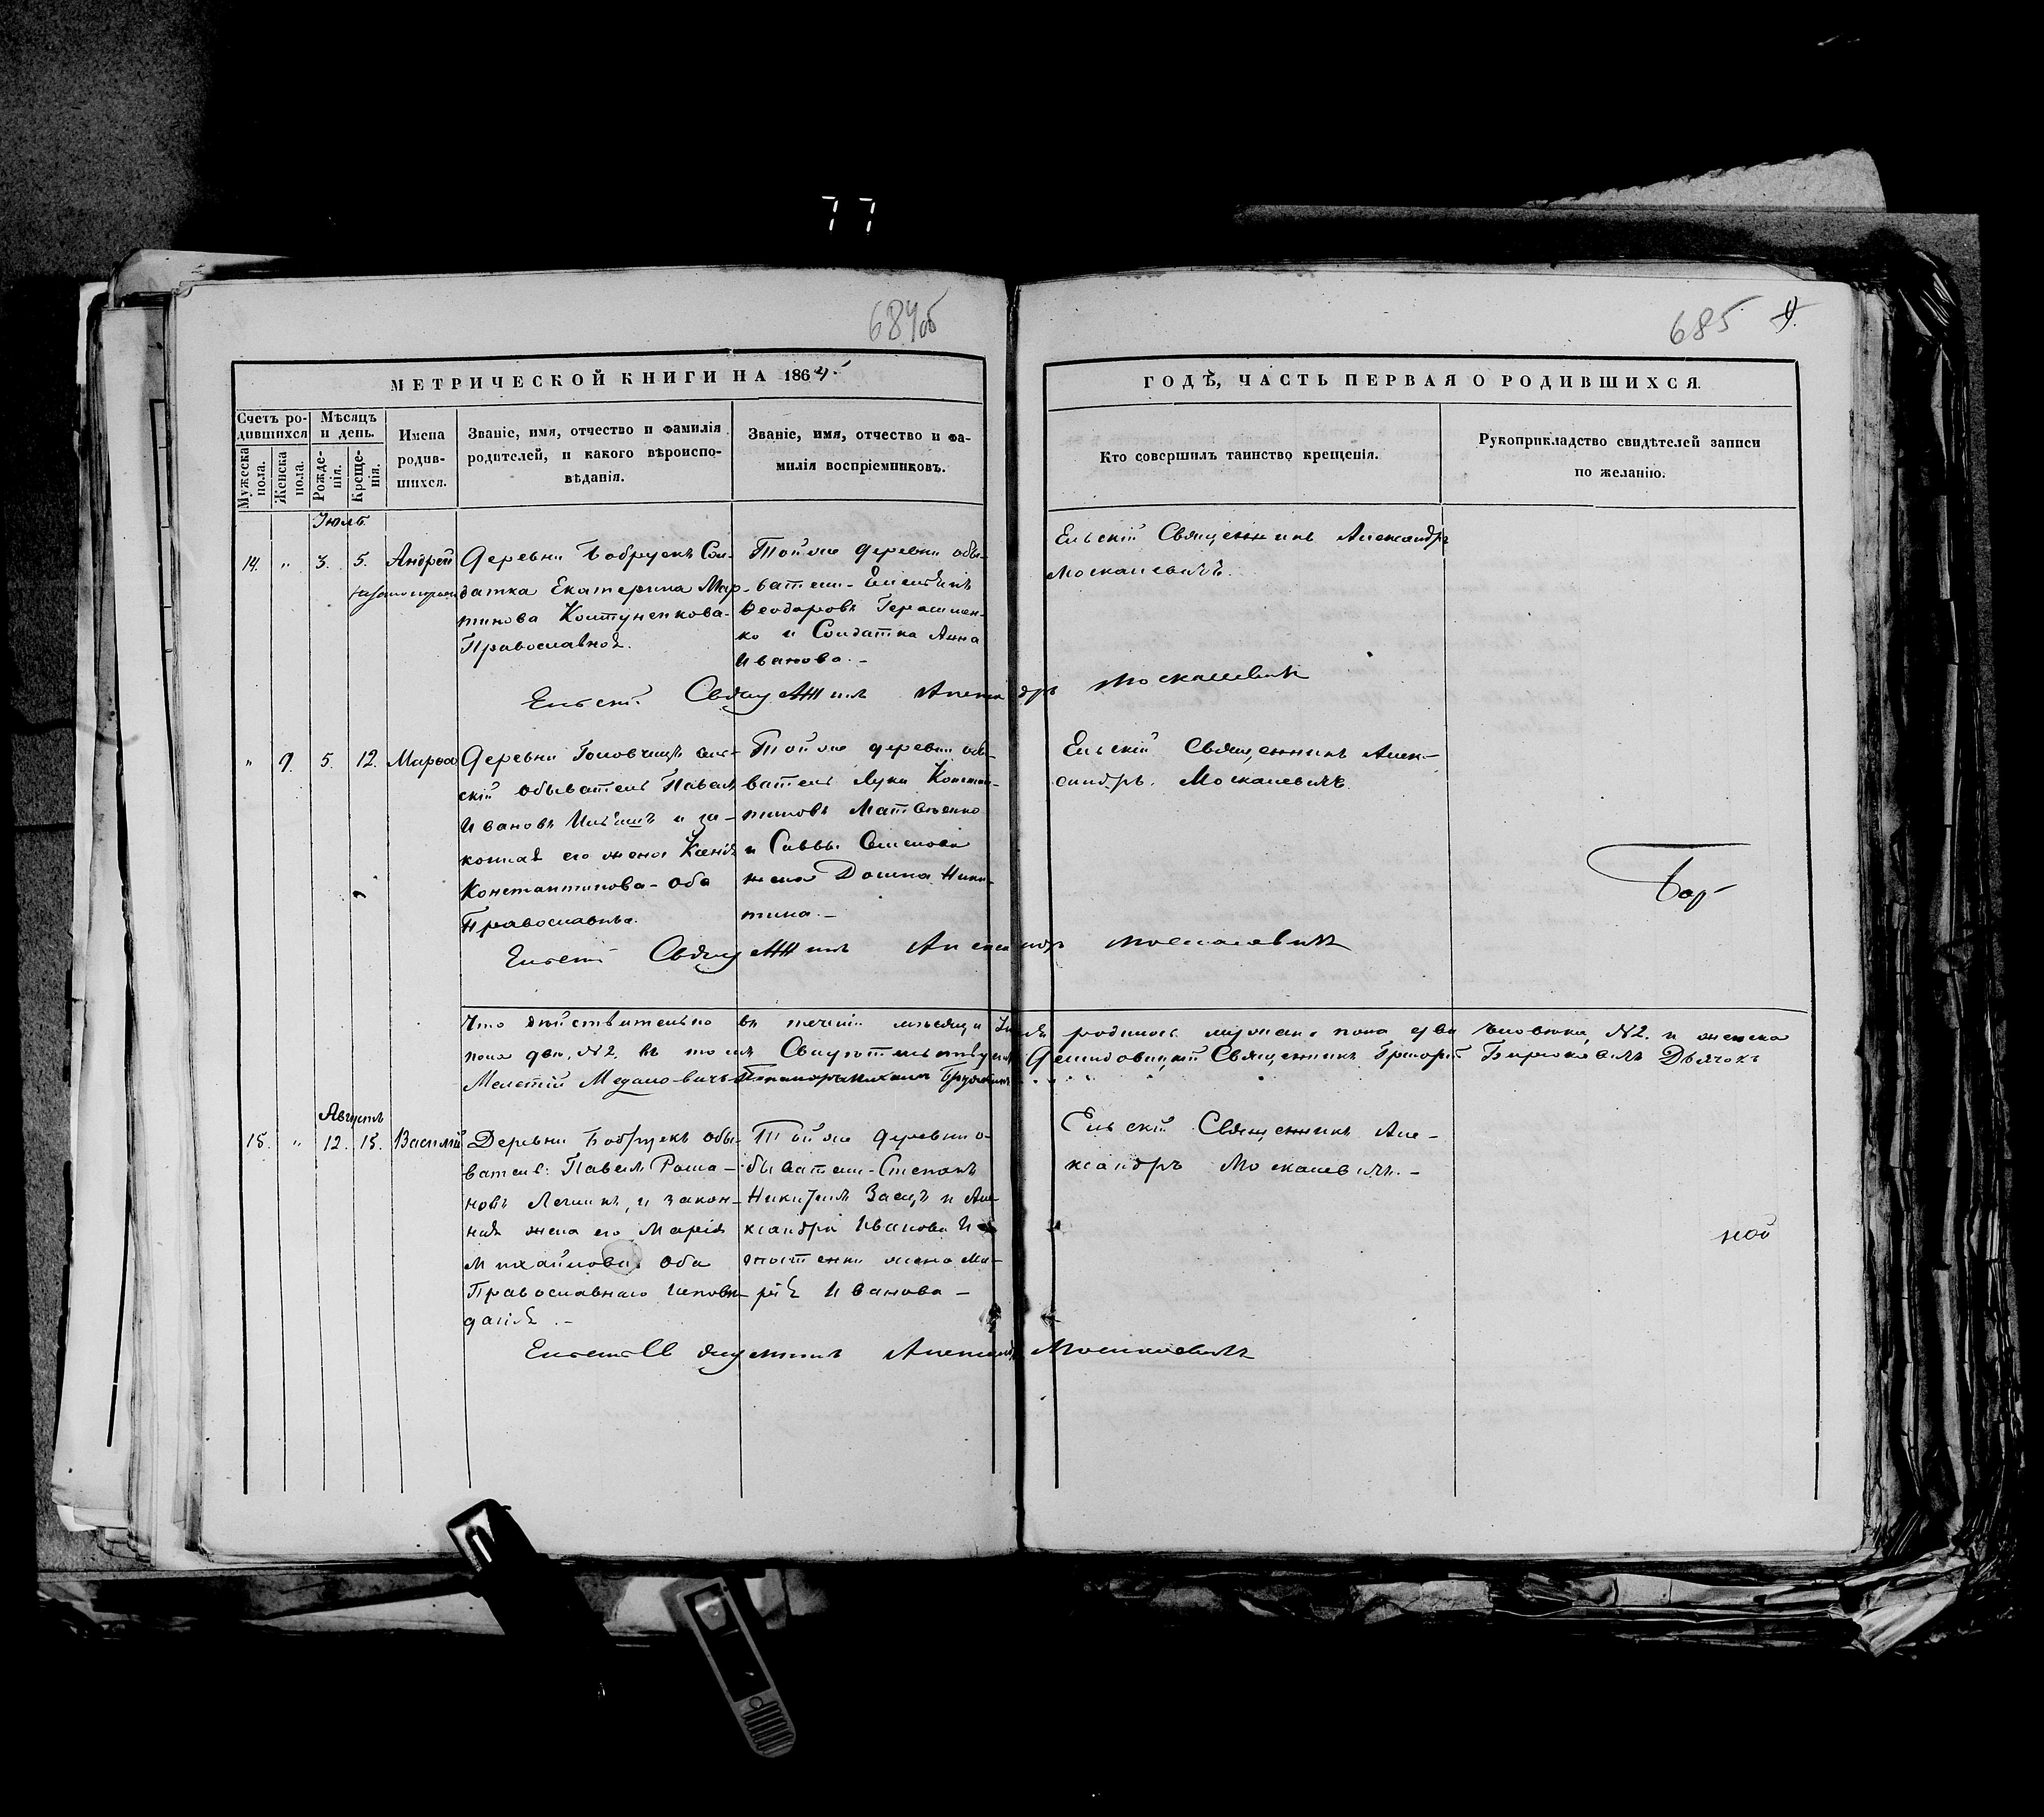 77
684 об
685
9.
МЕТРИЧЕСКОЙ КНИГИ НА 1864
ГОДѢ, ЧАСТЬ ПЕРВАЯ О РОДИВШИХСЯ.
Счетъ ро-
дившихся
Мужеска
пола.
Женска
пола.
Мѣсяцъ
и день.
Рожде-
нія.
Креще-
нія.
Имена
родив-
шихся.
Званіе, имя, отчество и фамилія
родителей, и какого вѣроиспо-
вѣданія.
Званіе, имя, отчество и фа-
милія воспріемниковъ.
Кто совершилъ таинство крещенія.
Рукоприкладство свидѣтелей записи
по желанію.
Іюль
14. " 3. 5. Андрей
Деревни Бобрукъ Сол-
датка Екатерина Мар-
тинова
Православной.
Той же деревни обы-
ватели
Ѳеодоровъ Герасимен-
ко и Солдатка Анна
Иванова. -
Ельскій Священникъ Александръ
Москалевичъ.
Ельскій Священникъ Александръ Москалевичъ
" 9. 5. 12. Марѳа
Деревни сель-
скій обыватель Павелъ
Ивановъ и за-
конная его жена Ксенія
Константинова - оба
Православные.
Той же деревни обы-
ватель Лука Констан-
тиновъ Матвѣенко
и Саввы
жена Домна Ники-
тина. -
Ельскій Священникъ Алек-
сандръ. Москалевичъ.
Бор-
Ельскій Священникъ Александръ Москалевичъ
Что дѣйствительно въ теченіи мѣсяца Іюля родилось мужеска пола два человѣка, №2. и женска
пола два, №2. въ томъ Свидѣтельствуемъ Священникъ Григорій Дьячокъ
Мелетій Пономарь Михаилъ
Августъ
15. " 12. 15. Василій
Деревни Бобрукъ обы-
ватель: Павелъ Рома-
новъ и закон-
ная жена его Марія
Михайлова оба
Православнаго исповѣ-
данія. -
Той же деревни о-
быватели - Степанъ
Никитинъ Заецъ и Але-
ксандра Иванова
жена Ма-
рія Иванова -
Ельскій Священникъ Але-
ксандръ Москалевичъ. -
ной
Ельскій Священникъ Александръ Москалевичъ